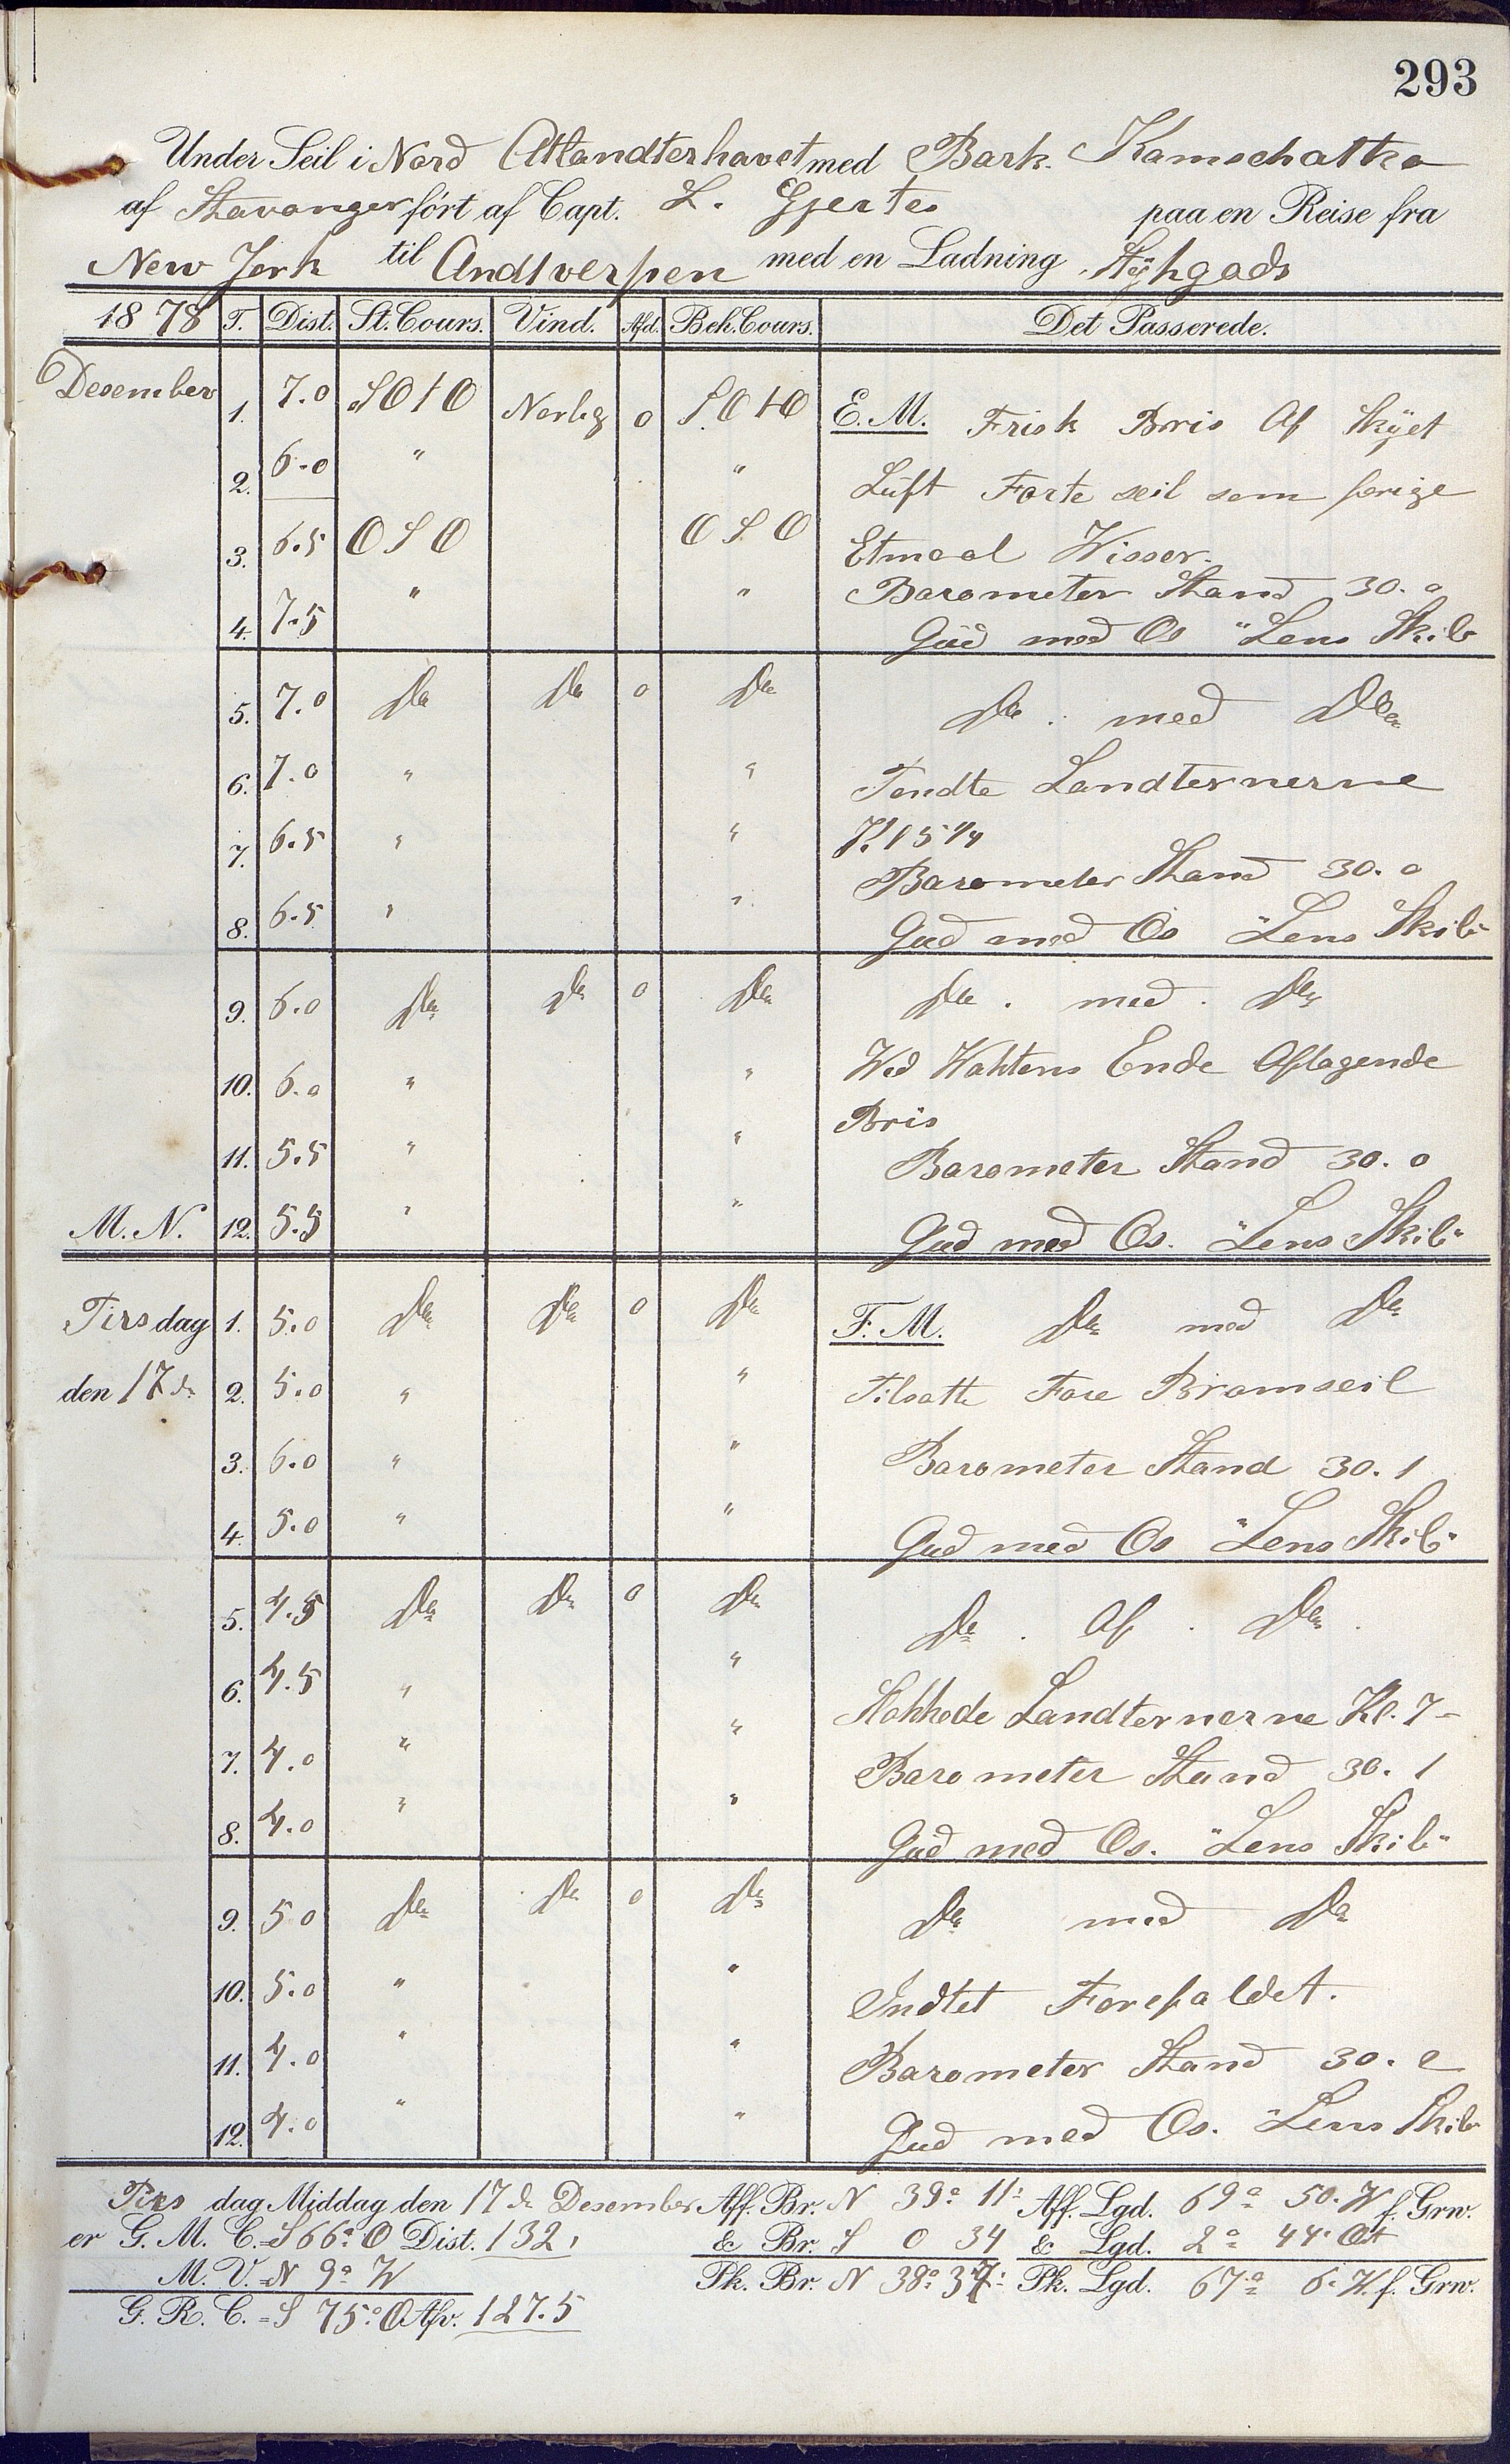 293
Under Seil i Nord Atlandterhavet med Bark. Kamschatka
af Stavanger ført af Capt. L. Gjertes paa en Reise fra
New Jork til Andtverpen med en Ladning Stÿkgods
1878 T. Dist. St. Cours. Vind. Afd. Beh. Cours. Det Passerede.
Desember 1. 7.0 SOtO Norlig 0 SOtO E.M. Frisk Bris Af Skÿet
2. 6.0 " " Luft Forte seil som forige
3. 6.5 OSO OSO Etmaal Wisser.
4. 7.5 " " Barometer Stand 30.0
Gud med Os "Lens Skib
5. 7.0 Do Do 0 Do Do. med Do
6. 7.0 " " Tendte Landternerne
7. 6.5 " " Kl 5 1/4
Barometer Stand 30.0
8. 6.5 " " Gud med Os "Lens Skib"
9. 6.0 Do Do 0 Do Do. med. Do
10. 6.0 " " Wed Wahtens Ende Aftagende
Bris
11. 5.5 " " Barometer Stand 30.0
M. N. 12. 5.5 " " Gud med Os. "Lens Skib"
Tirsdag 1. 5.0 Do Do 0 Do F. M. Do med Do
den 17de 2. 5.0 " " Tilsatte Fore Bramseil
3. 6.0 " " Barometer Stand 30.1
4. 5.0 " " Gud med Os "Lens Skib"
5. 4.5 Do Do 0 Do Do. Af. Do.
6. 4.5 " " Slokkede Landternerne Kl. 7
7. 4.0 " " Barometer Stand 30.1
8. 4.0 " " Gud med Os. "Lens Skib"
9. 5.0 Do Do 0 Do Do med Do
10. 5.0 " " Indtet Forefaldet.
11. 4.0 " " Barometer Stand 30.2
12. 4.0 " " Gud med Os. "Lens Skib
Tirsdag Middag den 17de Desember Aff. Br. N 39° 11' Aff. Lgd. 69° 50. W f. Grw.
er G. M. C. = S 66° O Dist. 132, & Br. S 0 34 & Lgd. 2° 44' Ost
M. V. = N 9° W Pk. Br. N 38° 37' Pk. Lgd. 67° 6' W. f. Grw.
G. R. C. = S 75° O Afv. 127.5